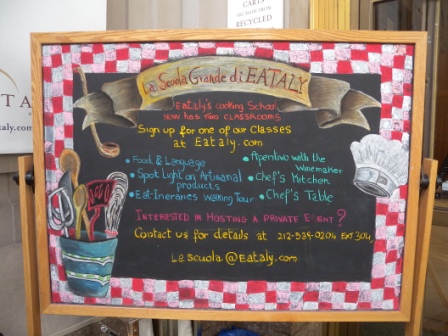 CARTS
RECYCLED
TALY
aly.com
La Scuola Grande di EATALY
EATALY'S COOKING SCHOOL
NOW HAS TWO CLASSROOMS
Sign up for one of our Classes
at Eataly.com
• Food & Language
• Spot Light on Artisanal
products
• Eat-Ineraries Walking Tour
• Aperitivo with the
Winemaker
• Chef's Kitchen
• Chef's Table
INTERESTED IN HOSTING A PRIVATE EVENT?
Contact us for details at 212-539-0204 EXT 304,
LaScuola@Eataly.com